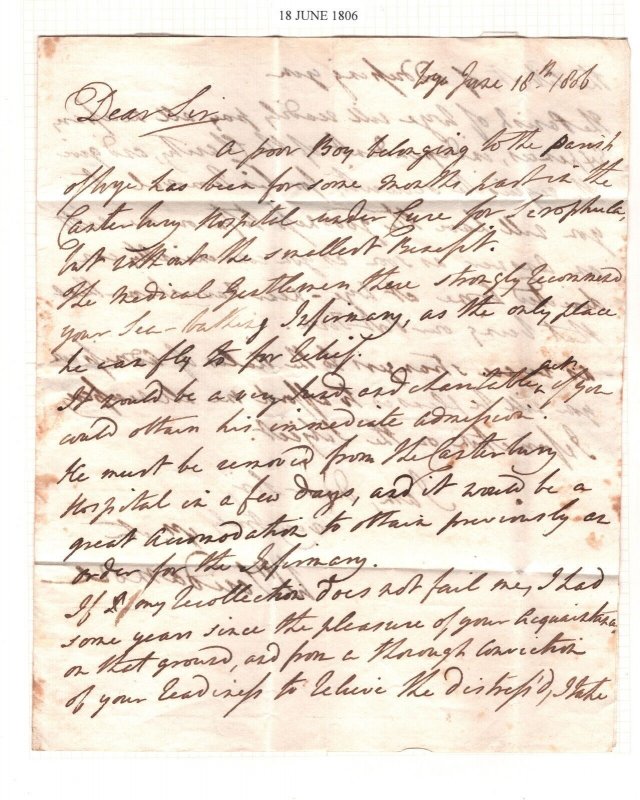 18 JUNE 1806
Wye June 18th 1806
Dear Sir
A poor Boy belonging to the Parish
of Wye has been for some months past in the
Canterbury Hospital under Cure for Scrophula,
but without the smallest Benefit.
The Medical Gentlemen there strongly recommend
your Sea-bathing Infirmary, as the only place
he can fly to for relief.
It would be a very kind and charitable act if you
could obtain his immediate admission.
He must be removed from the Canterbury
Hospital in a few days, and it would be a
great Accomodation to obtain previously an
order for the Infirmary.
If my recollection does not fail me, I had
some years since the pleasure of your Acquaintance
on that ground, and from a thorough Conviction
of your readiness to relieve the distress'd, I take